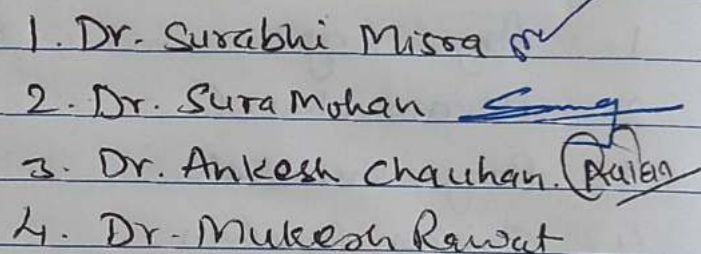 1. Dr. Surabhi Misra
2. Dr. Sura Mohan
3. Dr. Ankesh Chauhan.
4. Dr. Mukesh Rawat